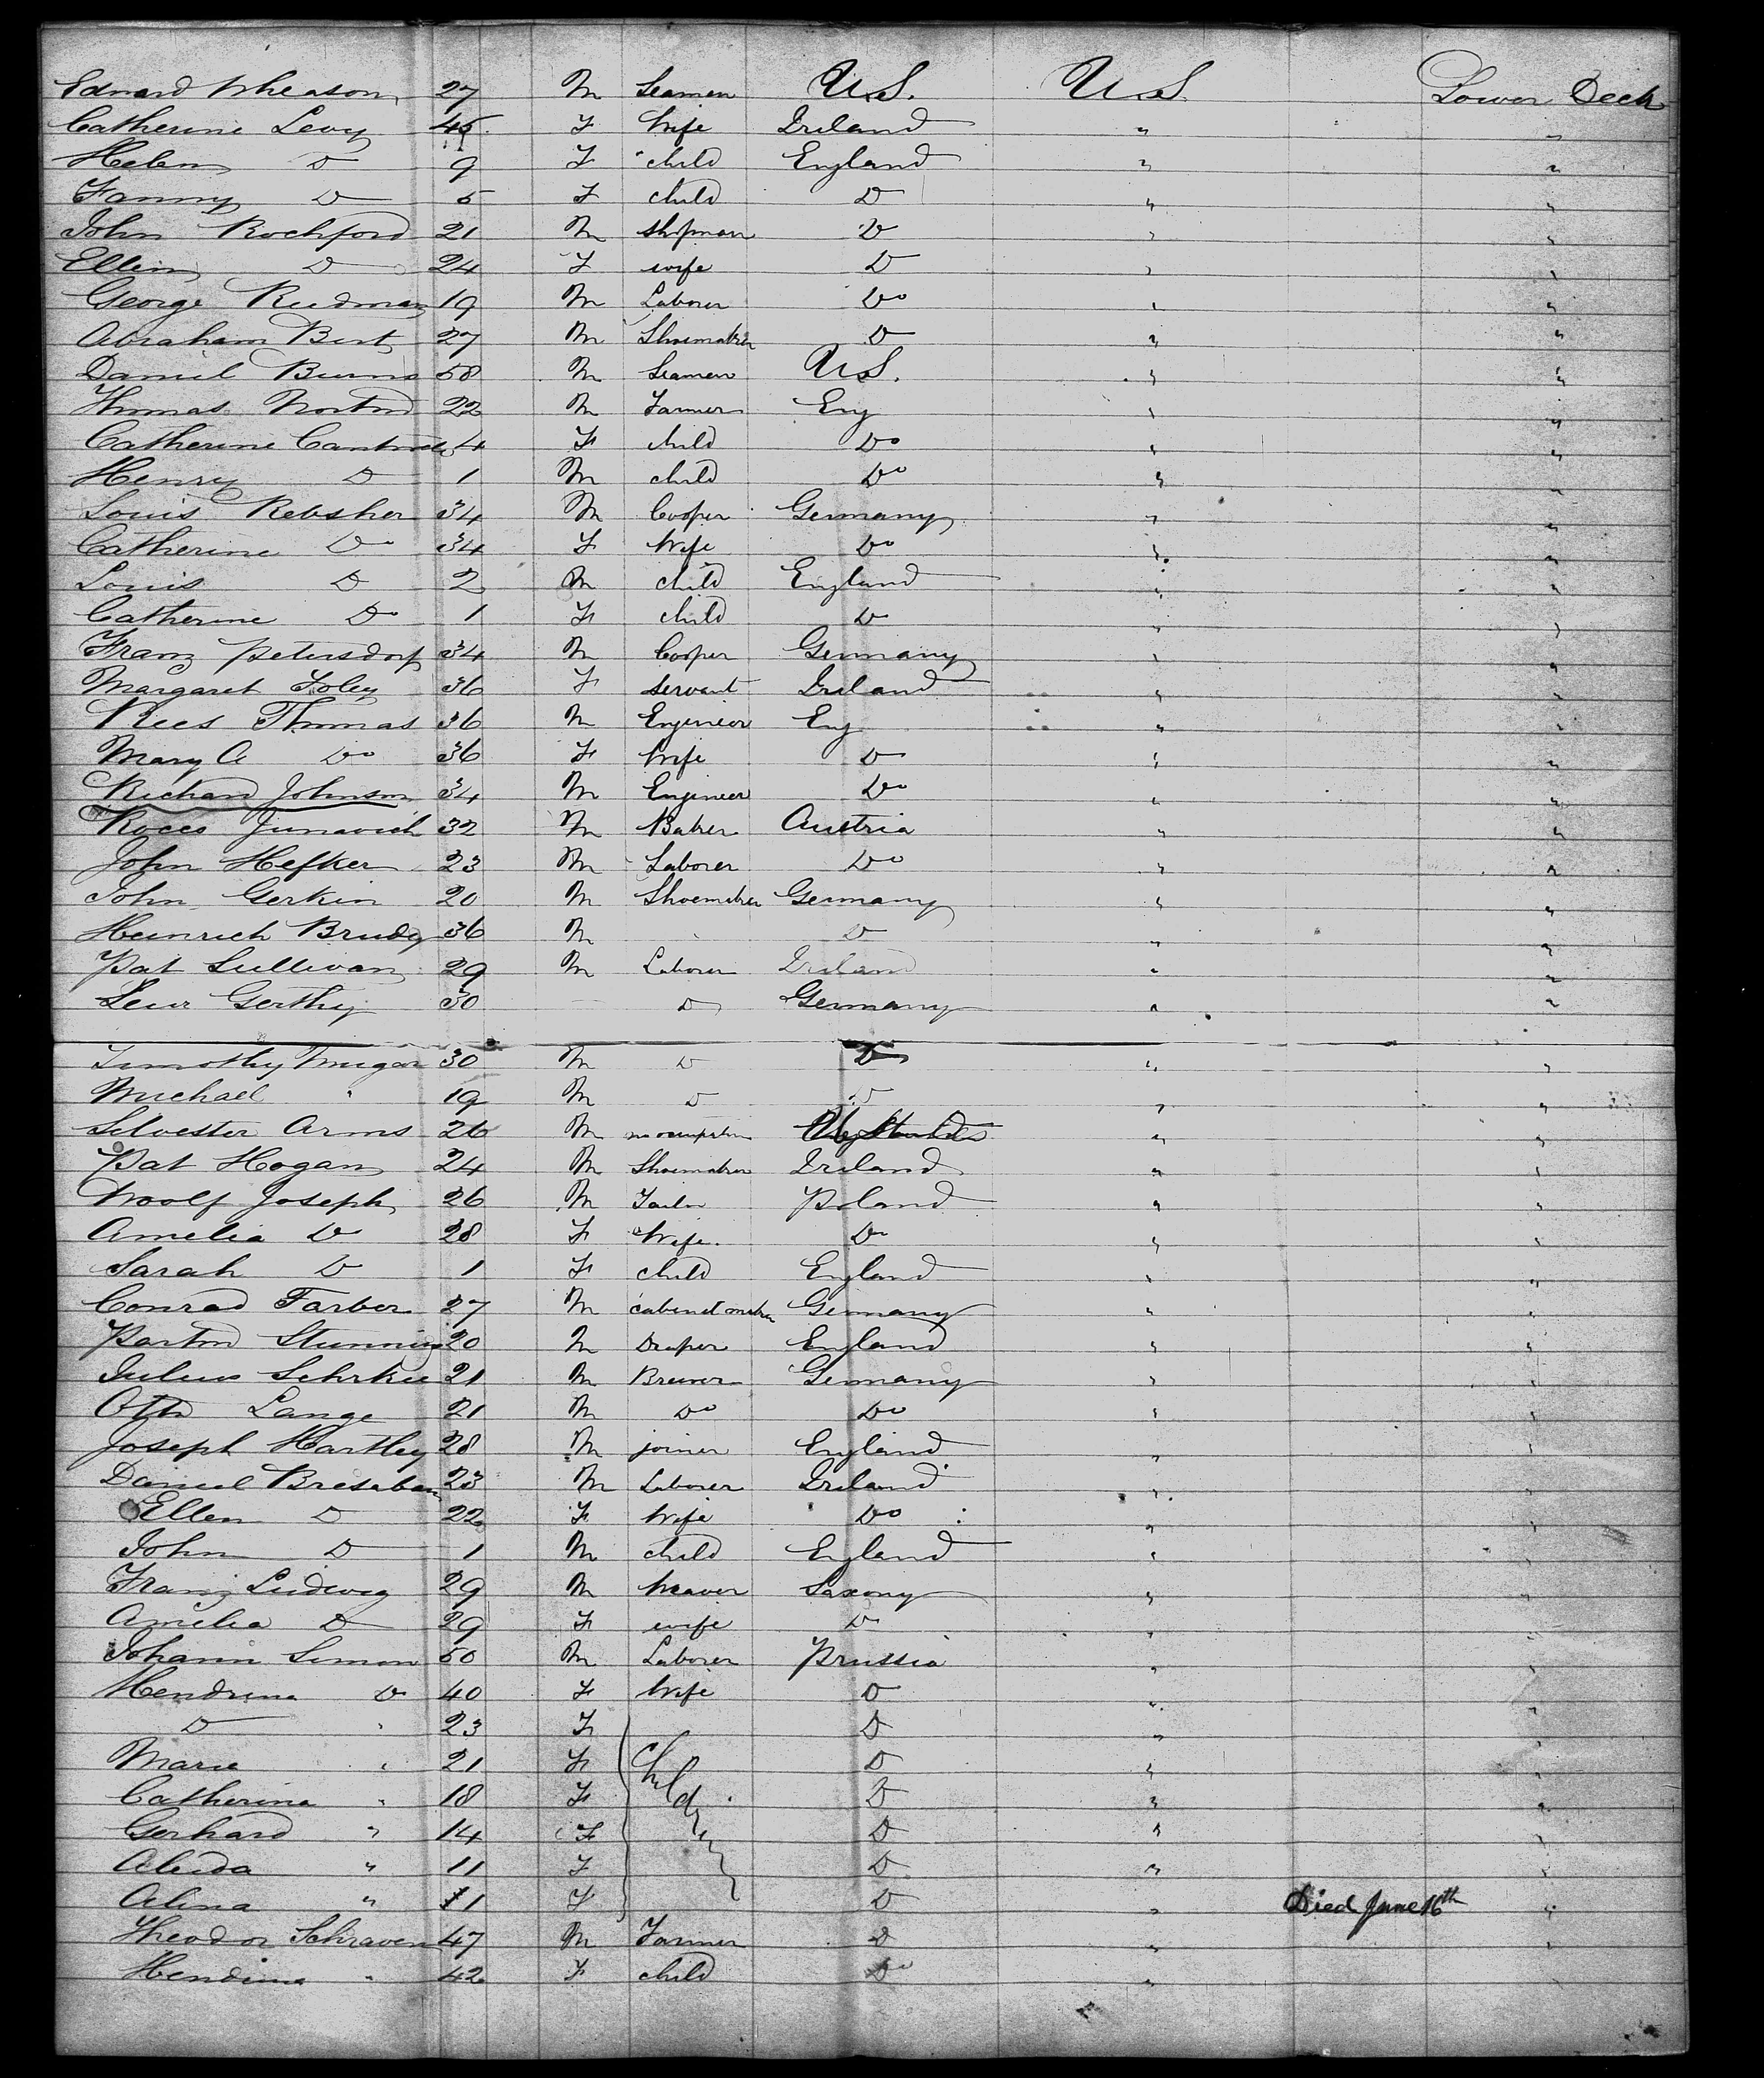 Edward Wheason 27 M Seaman U.S. U.S. Lower Deck
Catherine Levy 45 F Wife Ireland " "
Helen Do 9 F child England " "
Fanny Do 5 F child Do " "
John Rochford 21 M shipman Do " "
Ellen Do 24 F wife Do " "
George Rudman 19 M Laborer Do " "
Abraham Bert 27 M Shoemaker Do " "
Daniel Burns 58 M Seaman U.S. " "
Thomas Norton 22 M Farmer Eng " "
Catherine 4 F child Do " "
Henry Do 1 M child Do " "
Louis Rebsher 34 M Cooper Germany " "
Catherine Do 34 F Wife Do " "
Louis Do 2 M child England " "
Catherine Do 1 F child Do " "
Franz Petersdorf 34 M Cooper Germany " "
Margaret Foley 36 F Servant Ireland " "
Rees Thomas 36 M Engineer Eng " "
Mary A Do 36 F Wife Do " "
Richard Johnson 34 M Engineer Do " "
Rocco Junavich 32 M Baker Austria " "
John Hefker 23 M Laborer Do " "
John Gerkin 20 M Shoemaker Germany " "
Heinrich Brudy 36 M Do " "
Pat Sullivan 29 M Laborer Ireland " "
Gerthy 30 Do Germany " "
Timothy 30 M Do Do " "
Michael " 19 M Do Do " "
Silvester Arms 26 M no occupation " "
Pat Hogan 24 M Shoemaker Ireland " "
Woolf Joseph 26 M Tailor Poland " "
Amelia Do 28 F Wife Do " "
Sarah Do 1 F child England " "
Conrad Farber 27 M cabinet maker Germany " "
20 M Draper England " "
Julius Sehrkie 21 M Brewer Germany " "
Otto Lange 21 M Do Do " "
Joseph Hartley 28 M joiner England " "
Daniel 23 M Laborer Ireland " "
Ellen Do 22 F Wife Do " "
John Do 1 M child England " "
Franz Ludewig 29 M Weaver Saxony " "
Amelia Do 29 F wife Do " "
Johann Simon 50 M Laborer Prussia " "
Hendrina Do 40 F Wife Do " "
Do " 23 F Children Do " "
Marie " 21 F Do " "
Catherina " 18 F Do " "
Gerhard " 14 F Do " "
Aleida " 11 F Do " "
Alina " 11 F Do " Died June 16th "
Theodor Schraven 47 M Farmer Do " "
Hendina " 42 F child Do " "